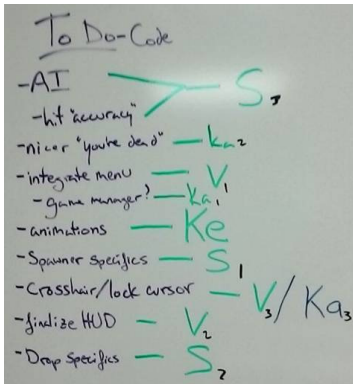 To Do-Code
-AI
S₃
-hit "accuracy"
-nicer "you're dead" — ka₂
-integrate menu — V₁
-game manager? — Ka₁
-animations — Ke
-Spawner specifics — S₁
-Crosshair/lock cursor — V₃/Ka₃
-finalize HUD — V₂
-Drop Specifics — S₂